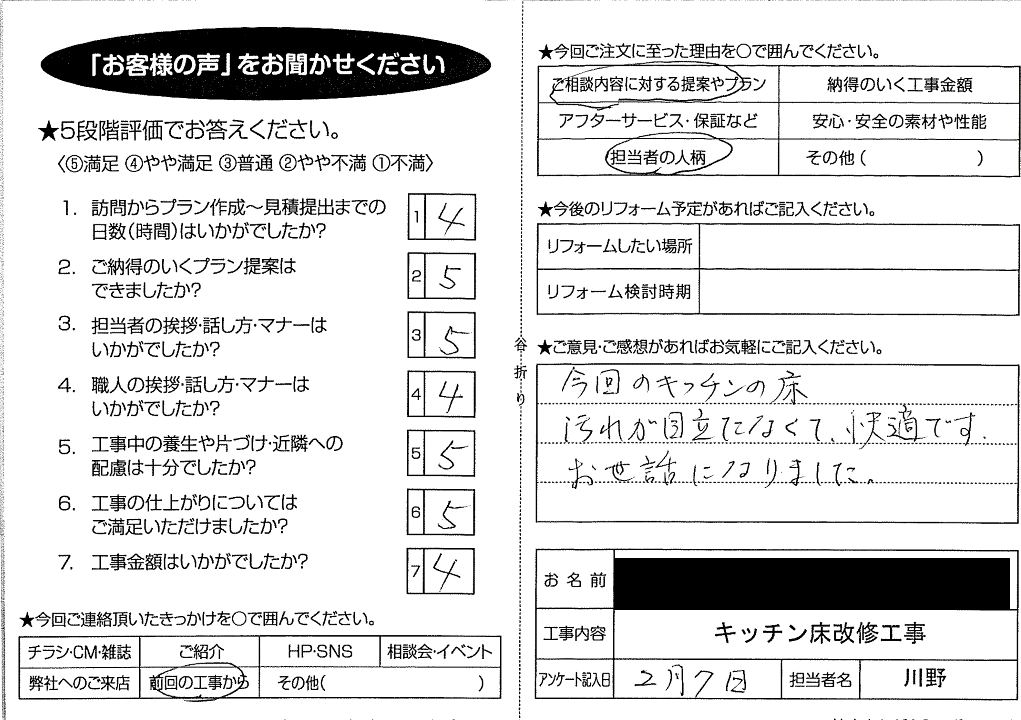 「お客様の声」をお聞かせください
★5段階評価でお答えください。
〈⑤満足 ④やや満足 ③普通 ②やや不満 ①不満〉
1. 訪問からプラン作成～見積提出までの
日数(時間)はいかがでしたか? 1 4
2. ご納得のいくプラン提案は
できましたか? 2 5
3. 担当者の挨拶・話し方・マナーは
いかがでしたか? 3 5
4. 職人の挨拶・話し方・マナーは
いかがでしたか? 4 4
5. 工事中の養生や片づけ・近隣への
配慮は十分でしたか? 5 5
6. 工事の仕上がりについては
ご満足いただけましたか? 6 5
7. 工事金額はいかがでしたか? 7 4
★今回ご連絡頂いたきっかけを○で囲んでください。
チラシ・CM・雑誌 ご紹介 HP・SNS 相談会・イベント
弊社へのご来店 前回の工事から その他( )
谷折り
★今回ご注文に至った理由を○で囲んでください。
ご相談内容に対する提案やプラン 納得のいく工事金額
アフターサービス・保証など 安心・安全の素材や性能
担当者の人柄 その他( )
★今後のリフォーム予定があればご記入ください。
リフォームしたい場所
リフォーム検討時期
★ご意見・ご感想があればお気軽にご記入ください。
今回のキッチンの床
汚れが目立たなくて、快適です.
お世話になりました。
お名前
工事内容 キッチン床改修工事
アンケート記入日 2月7日 担当者名 川野